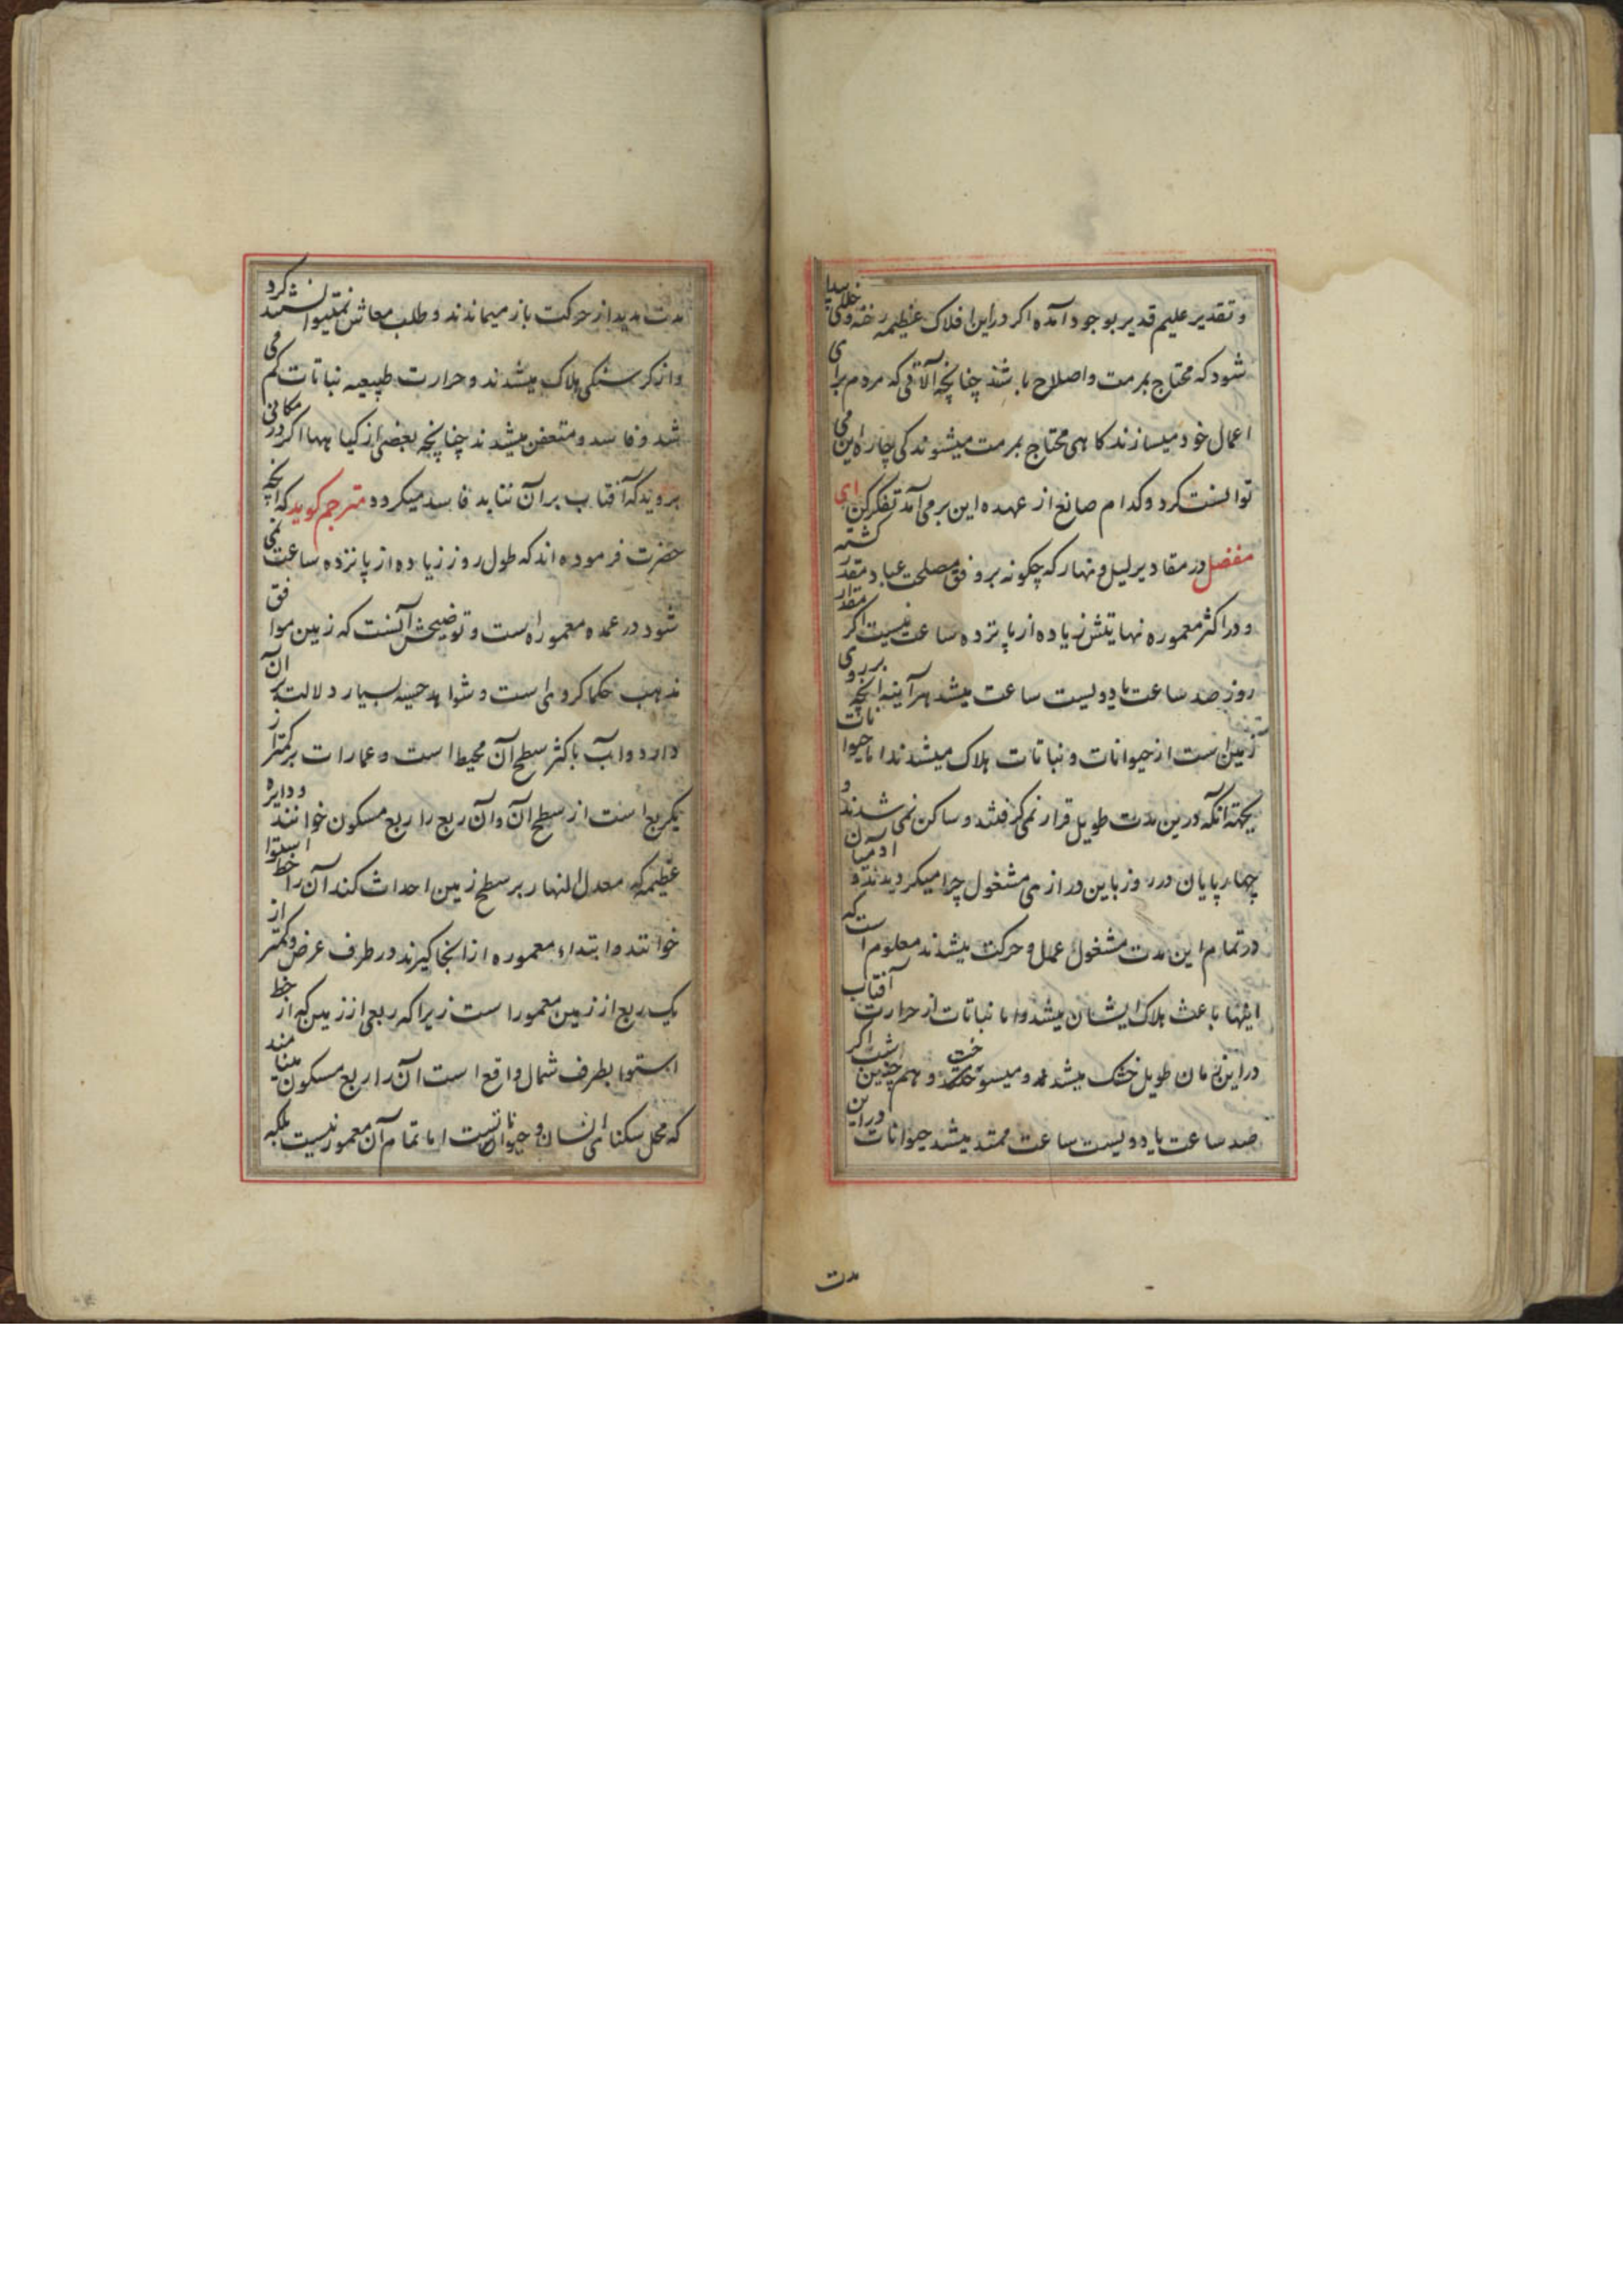 و تقدیر علیم قدیر بوجود آمده اکر دراین افلاک عظیمه رخنه و خللی پیدا
شود که محتاج بمرمت و اصلاح باشد چنانچه آلاتی که مردم برای
اعمال خود میسازند کاهی محتاج بمرمت میشوند کی چاره این می
توانست کرد و کدام صانع از عهده این بر می آمد تفکر کن ای
مفضل در مقادیر لیل و نهار که چکونه بر وفق مصلحت عباد مقدر کشته
و در اکثر معموره نهایتش زیاده از پانزده ساعت نیست اکر مقدار
روز صد ساعت یا دویست ساعت میشد هرآینه آنچه بر روی
زمین است از حیوانات و نباتات هلاک میشدند اما حیوانات
بجهة آنکه درین مدت طویل قرار نمی کرفتند و ساکن نمی شدند و
چهارپایان در روز باین درازی مشغول چرا میکردیدند و آدمیان
در تمام این مدت مشغول عمل و حرکت میشدند معلوم است که
اینها باعث هلاک ایشان میشد و اما نباتات از حرارت آفتاب
در این زمان طویل خشک میشدند و میسوخت و هم چنین اکر شب
صد ساعت یا دویست ساعت ممتد میشد حیوانات دراین
مدت
مدت مدید از حرکت باز میماندند و طلب معاش نمیتوانستند کرد
و از کرسنکی هلاک میشدند و حرارت طبیعیه نباتات کم می
شد و فاسد و متعفن میشدند چنانچه بعضی از کیاهها اکر در مکانی
بروید که آفتاب بر آن نتابد فاسد میکردد مترجم کوید که آنچه
حضرت فرموده اند که طول روز زیاده از پانزده ساعت نمی
شود در عمده معموره است و توضیحش آنست که زمین موافق
مذهب حکما کروی است و شواهد حسیه بسیار دلالت بر آن
دارد و آب باکثر سطح آن محیط است و عمارات بر کمتر از
یکربع است از سطح آن و آن ربع را ربع مسکون خوانند و دایره
عظیمه که معدل النهار بر سطح زمین احداث کند آن را خط استوا
خوانند و ابتداء معموره از انجا کیرند در طرف عرض و کمتر از
یک ربع از زمین معمور است زیرا که ربعی از زمین که از خط
استوا بطرف شمال واقع است آن را ربع مسکون مینامند
که محل سکنای انسان و حیوانات است اما تمام آن معمور نیست بلکه